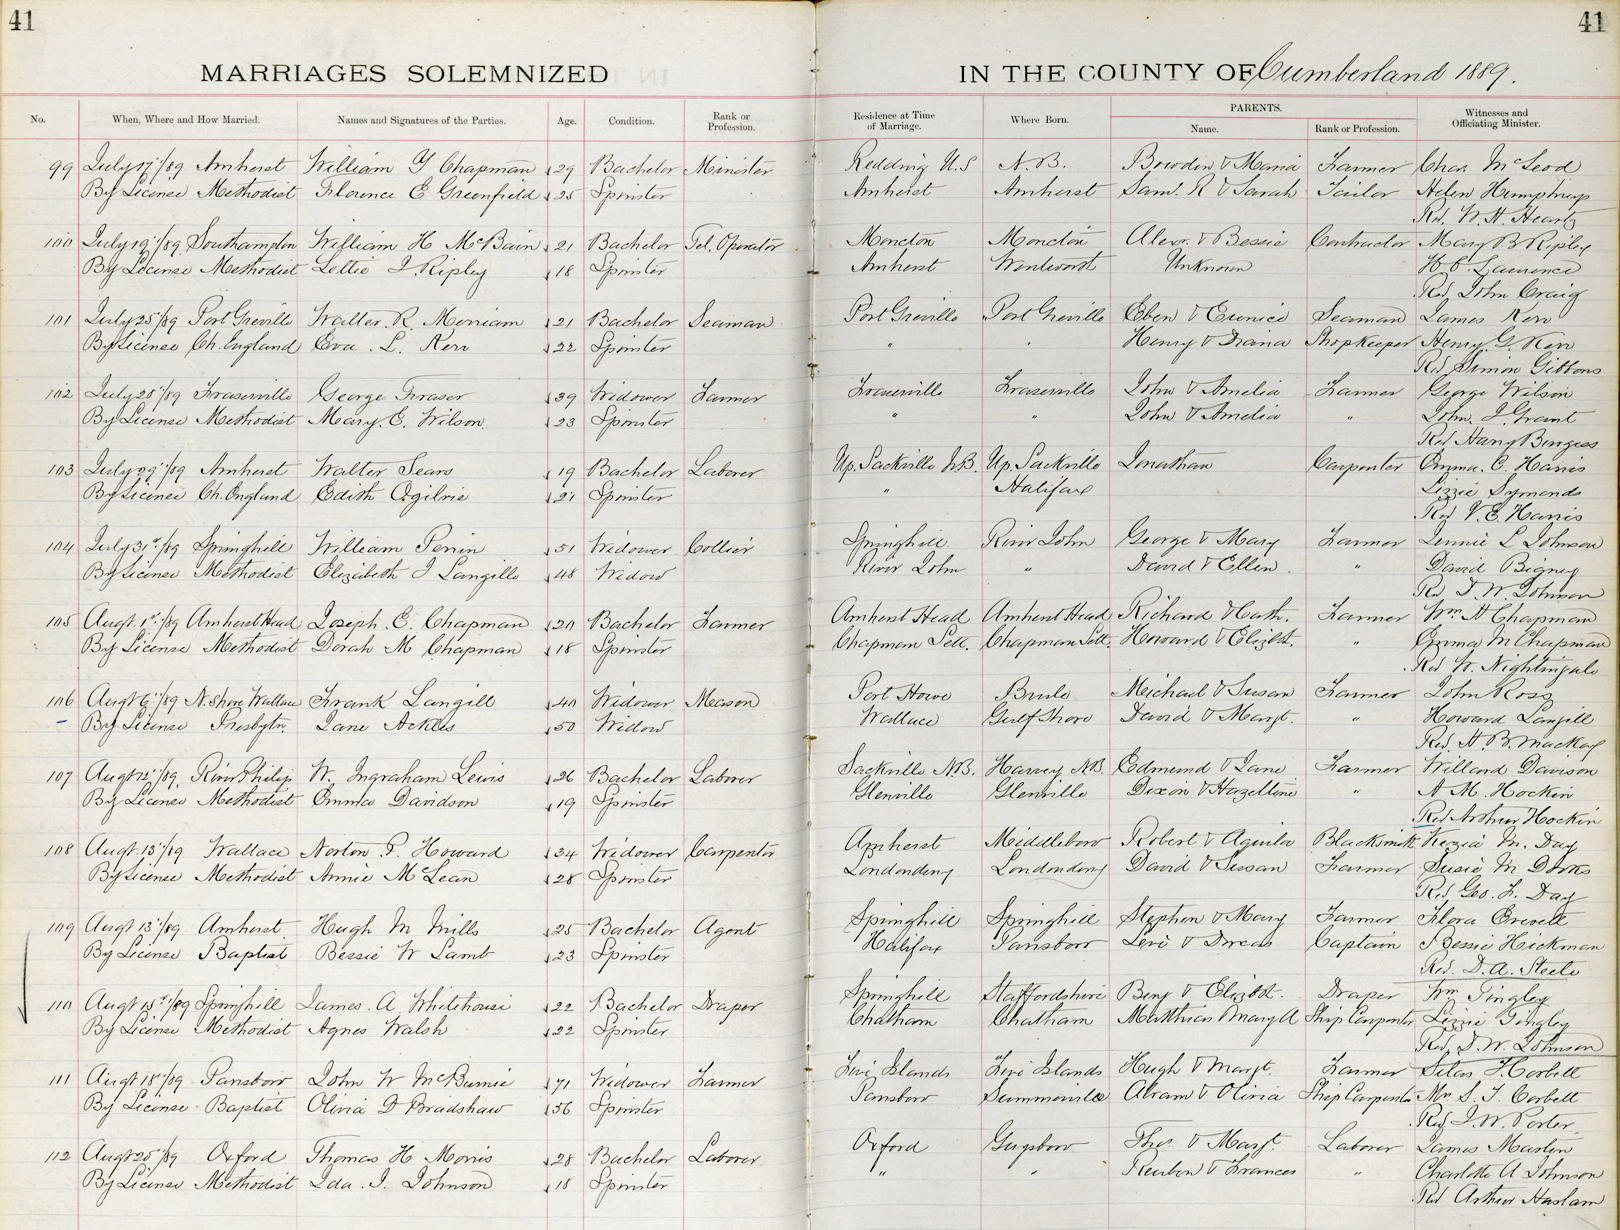 41
41
MARRIAGES SOLEMNIZED
IN THE COUNTY OF Cumberland 1889.
No. When, Where and How Married. Names and Signatures of the Parties. Age. Condition. Rank or Profession. Residence at Time of Marriage. Where Born. PARENTS. Name. Rank or Profession. Witnesses and Officiating Minister.
99 July 17th/89 Amherst William Y Chapman 29 Bachelor Minister Redding U.S N.B. Bowden & Maria Farmer Chas. McLeod
By License Methodist Florence E Greenfield 25 Spinster Amherst Amherst Saml. R & Sarah Tailor Helen Humphreys
Rd. W. H. Heartz
100 July 19th/89 Southampton William H McBain 21 Bachelor Tel. Operator Moncton Moncton Alexr. & Bessie Contractor Mary B Ripley
By License Methodist Lettie J. Ripley 18 Spinster Amherst Wentworth Unknown H. C. Lawrence
Rd. John Craig
101 July 25th/89 Port Greville Walter. R. Merriam 21 Bachelor Seaman Port Greville Port Greville Eben & Eunice Seaman James Kerr
By License Ch. England Eva. L. Kerr 22 Spinster " " Henry & Diana Shopkeeper Henry. G. Kerr
Rd Simon Gibbons
102 July 28th/89 Fraserville George Fraser 39 Widower Farmer Fraserville Fraserville John & Amelia Farmer George Wilson
By License Methodist Mary. E. Wilson 23 Spinster " " John & Amelia " John. J. Grant
Rd Harry Burgess
103 July 29th/89 Amherst Walter Sears 19 Bachelor Laborer Up. Sackville N.B. Up. Sackville Jonathan Carpenter Emma. C. Harris
By License Ch. England Edith Ogilvie 21 Spinster " Halifax Lizzie Symonds
Rd V. E. Harris
104 July 31st/89 Springhill William Perrin 51 Widower Collier Springhill River John George & Mary Farmer Lennie L Johnson
By License Methodist Elizabeth J Langille 48 Widow River John " David & Ellen " David Bigney
Rd D. W. Johnson
105 Augt. 1st/89 Amherst Head Joseph. E. Chapman 20 Bachelor Farmer Amherst Head Amherst Head Richard & Cath. Farmer Wm. H Chapman
By License Methodist Dorah M Chapman 18 Spinster Chapman Sett. Chapman Sett. Howard & Elizbt. " Emma M Chapman
Rd W. Nightingale
106 Augt 6th/89 N. Shore Wallace Frank Langill 40 Widower Mason Port Howe Brule Michael & Susan Farmer John Ross
By License Presbytn. Jane Ackles 50 Widow Wallace Gulf Shore David & Margt. " Howard Langill
Rd. H. B. MacKay
107 Augt 12th/89. River Philip W. Ingraham Lewis 26 Bachelor Laborer Sackville N.B. Harvey N.B. Edmund & Jane Farmer Willard Davison
By License Methodist Emma Davidson 19 Spinster Glenville Glenville Dixon & Hazeltine " A. M. Hockin
Rd Arthur Hockin
108 Augt. 13th/89 Wallace Norton P. Howard 34 Widower Carpenter Amherst Middleboro Robert & Aguila Blacksmith Kezia M. Day
By License Methodist Annie McLean 28 Spinster Londonderry Londonderry David & Susan Farmer Susie M
Rd Geo. F. Day
109 Augt 13th/89 Amherst Hugh M Mills 25 Bachelor Agent Springhill Springhill Stephen & Mary Farmer Flora Everett
By License Baptist Bessie W Lamb 23 Spinster Halifax Parrsboro Levi & Dorcas Captain Bessie Hickman
Rd. D. A. Steele
110 Augt 15th/89 Springhill James. A Whitehouse 22 Bachelor Draper Springhill Staffordshire Benj & Elizbt. Draper Wm Tingley
By License Methodist Agnes Walsh 22 Spinster Chatham Chatham Matthias & Mary A Ship Carpenter Lizzie Tingley
Rd. D. W. Johnson
111 Augt 18th/89 Parrsboro John W McBurnie 71 Widower Farmer Five Islands Five Islands Hugh & Margt. Farmer Silas H Corbett
By License Baptist Olivia D Bradshaw 56 Spinster Parrsboro Summerville Abram & Olivia Ship Carpenter Mrs S. T. Corbett
Rd J. W. Porter
112 Augt 20th/89 Oxford Thomas H Morris 28 Bachelor Laborer Oxford Guysboro Thos. & Margt. Laborer James Martin
By License Methodist Ida. J. Johnson 18 Spinster " " Reuben & Frances " Charlotte A Johnson
Rd Arthur Haslam